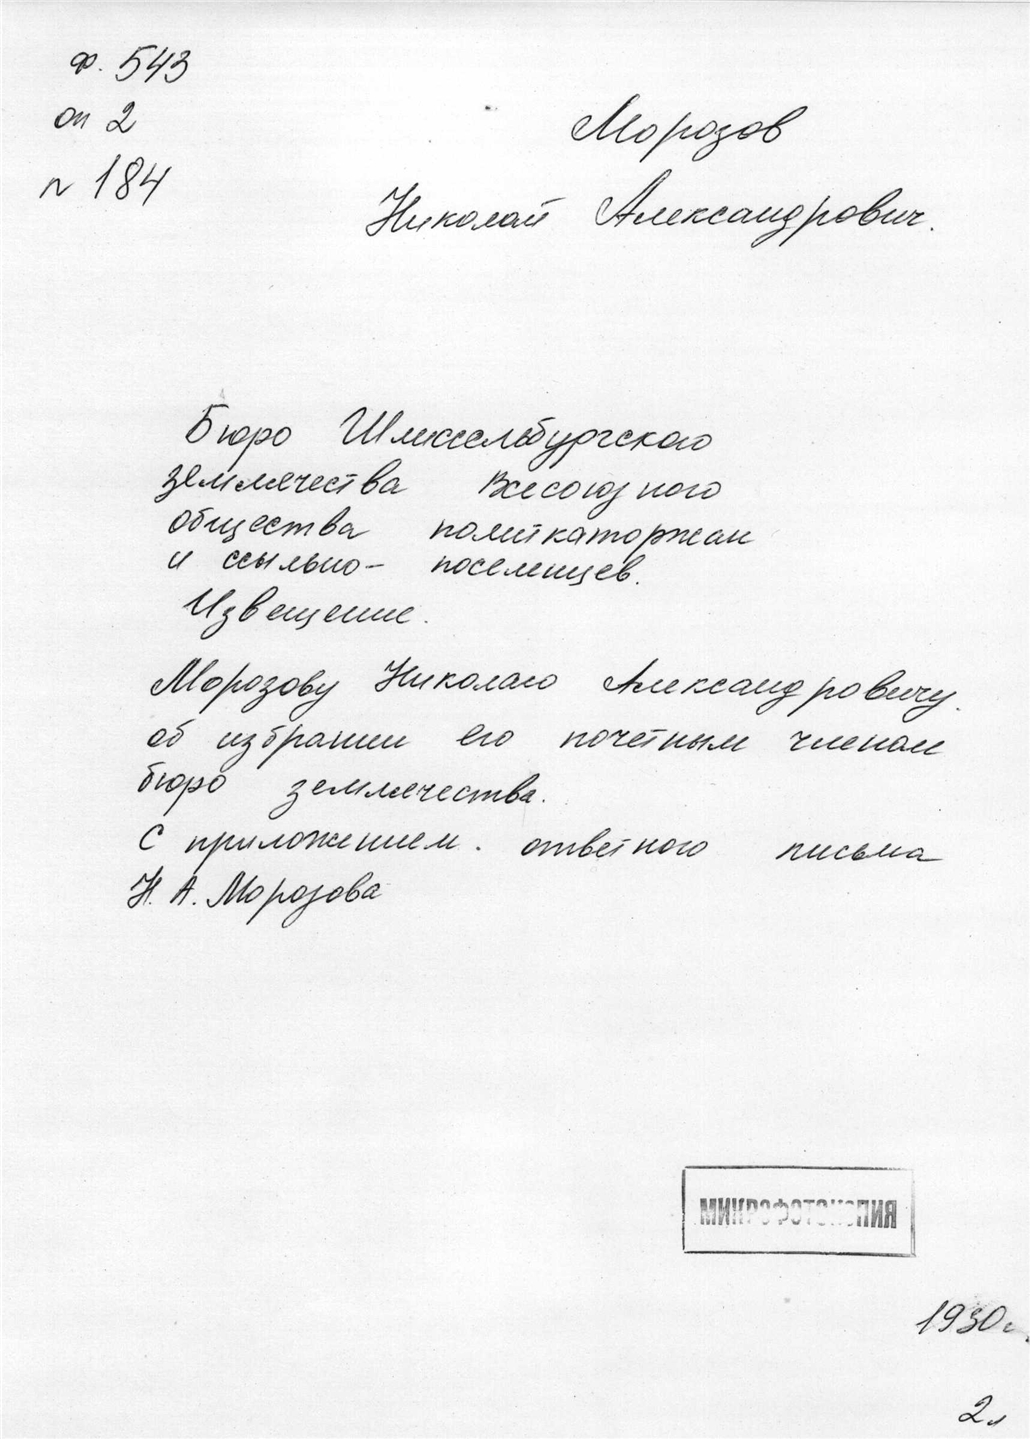 ф. 543
оп 2
n 184
Морозов
Николай Александрович.
Бюро Шлиссельбургского
землячества Всесоюзного
общества политкаторжан
и ссыльно- поселенцев.
Извещение.
Морозову Николаю Александровичу.
об избрании его почетным членом
бюро землячества.
С приложением. ответного письма
Н. А. Морозова
МИКРОФОТОКОПИЯ
1930г.
2л